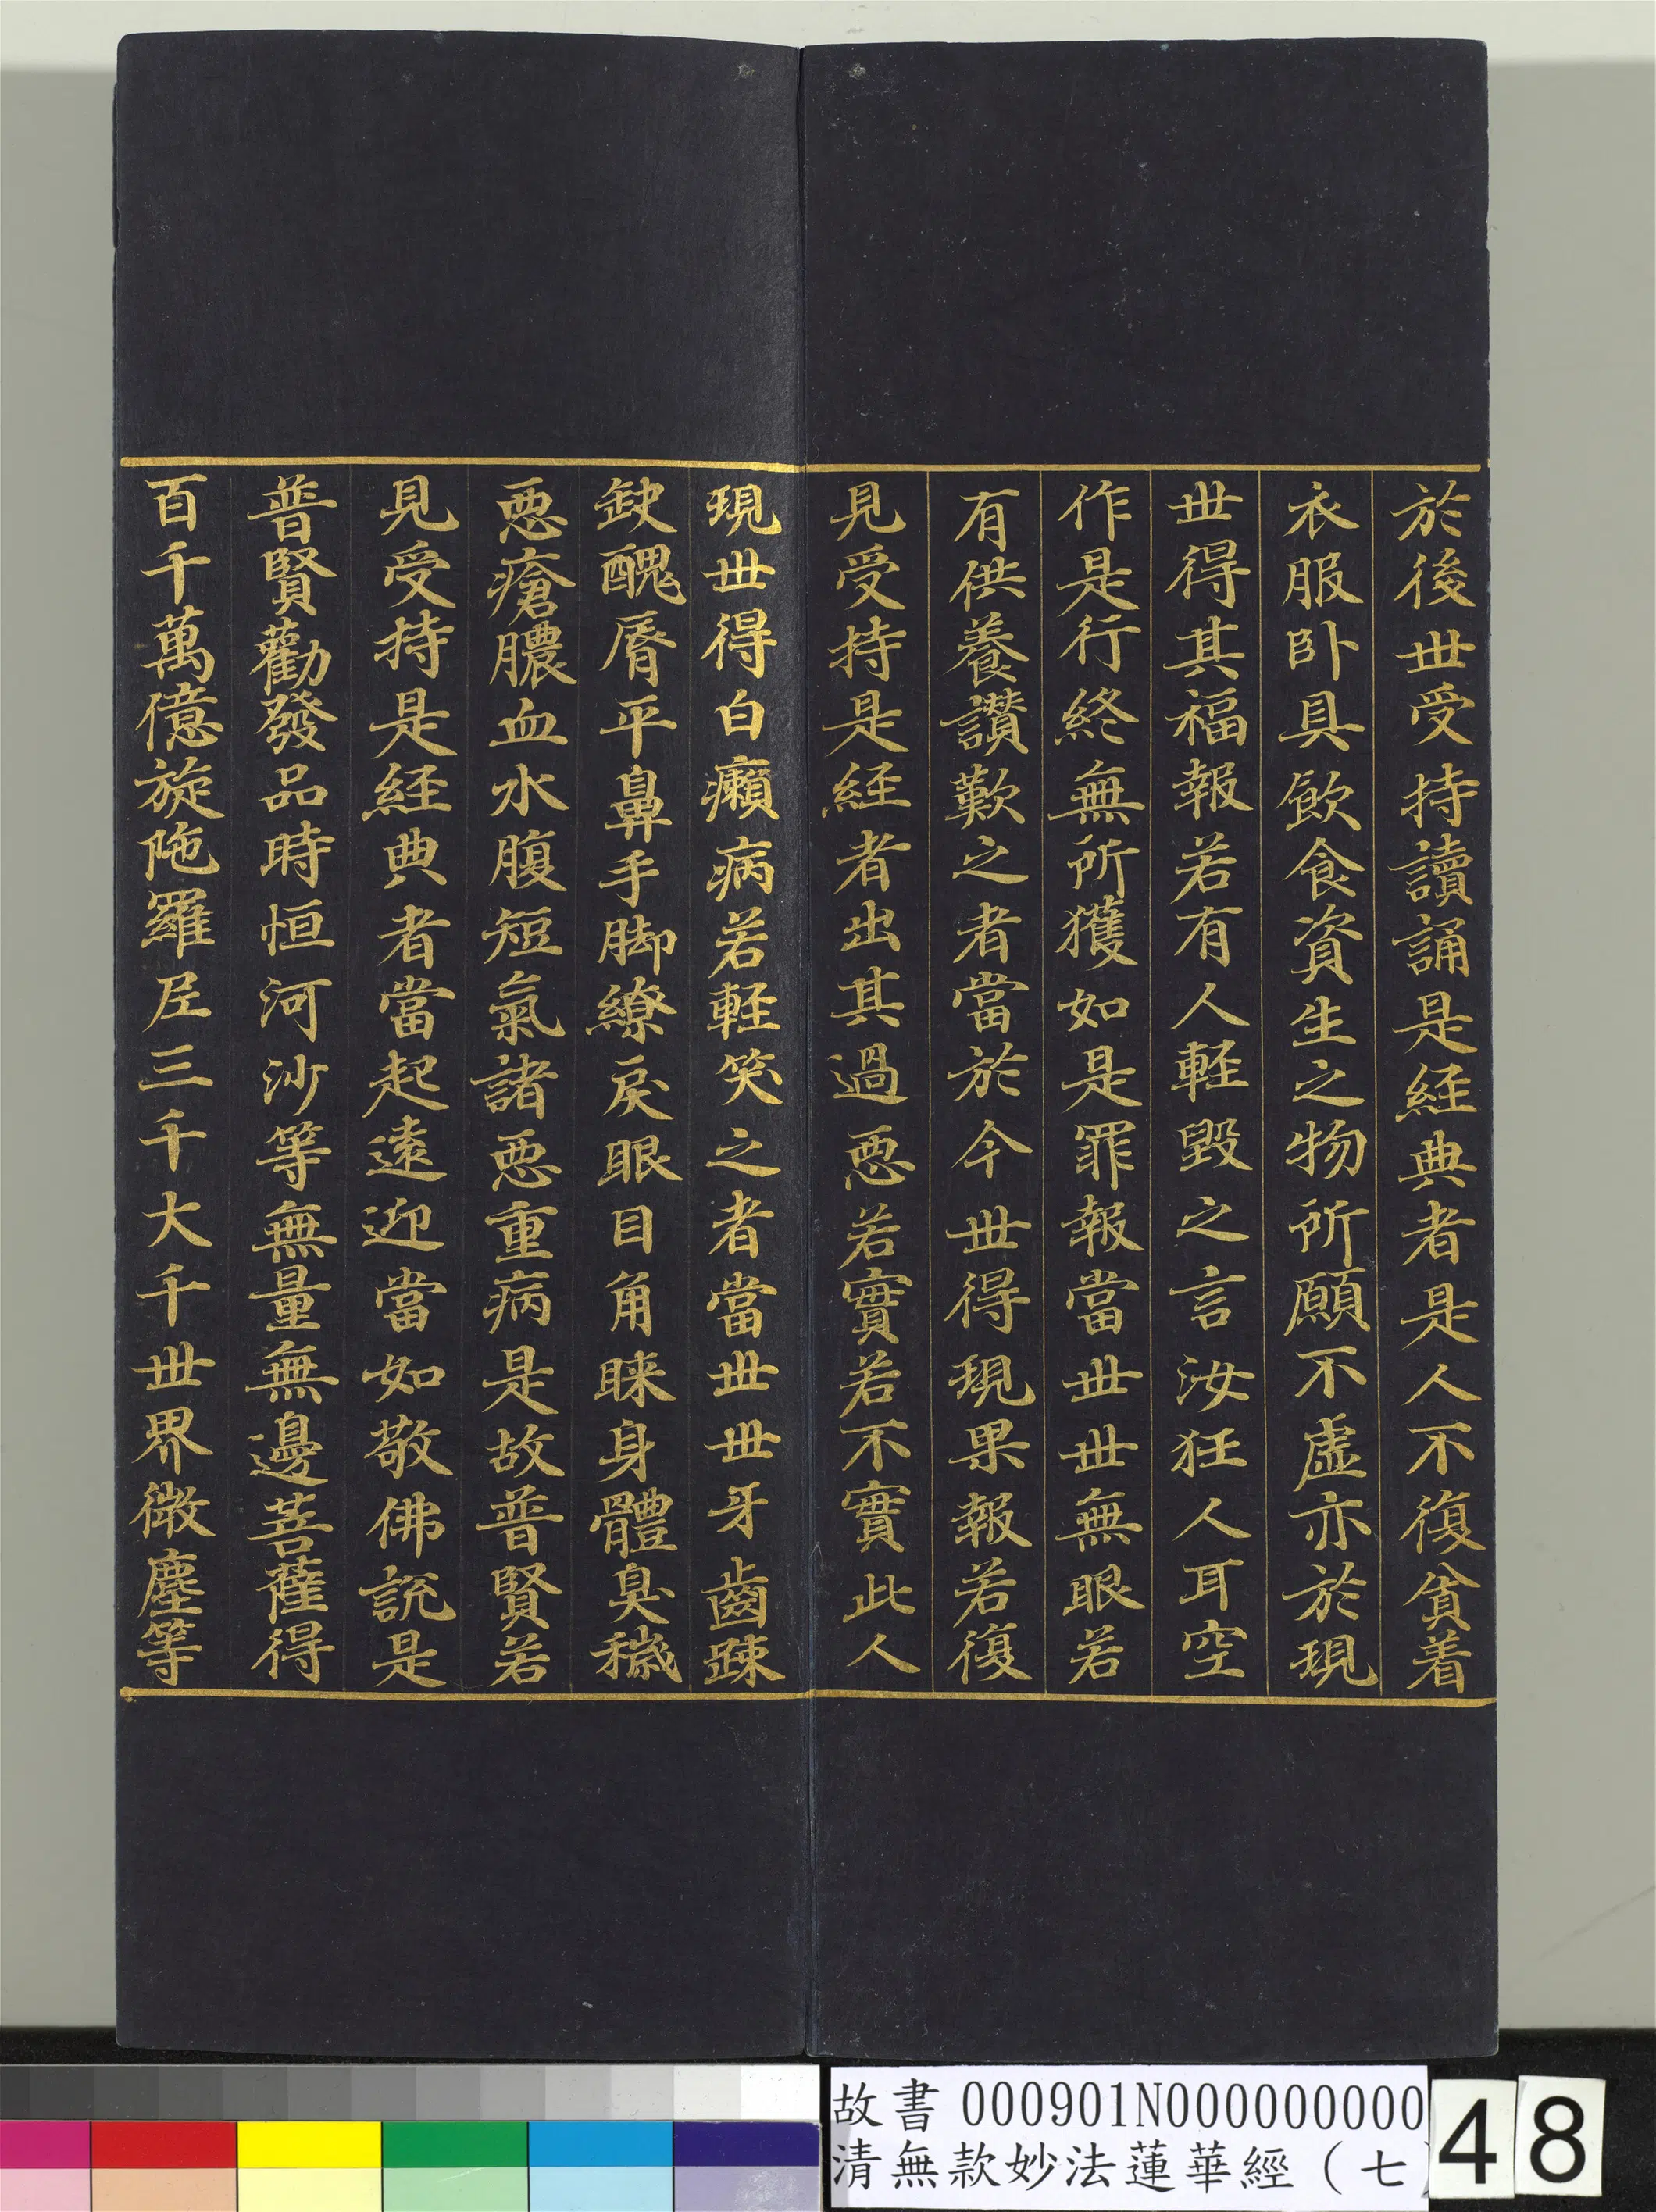 於後世受持讀誦是経典者是人不復貪着
衣服卧具飲食資生之物所願不虛亦於現
世得其福報若有人軽毀之言汝狂人耳空
作是行終無所獲如是罪報當世世無眼若
有供養讃歎之者當於今世得現果報若復
見受持是経者出其過悪若實若不實此人
現世得白癩病若軽笑之者當世世牙齒踈
缺醜脣平鼻手脚繚戾眼目角睞身體臭穢
悪瘡膿血水腹短氣諸悪重病是故普賢若
見受持是経典者當起遠迎當如敬佛説是
普賢勸發品時恒河沙等無量無邊菩薩得
百千萬億旋陁羅尼三千大千世界微塵等
故書 000901N000000000
清無款妙法蓮華經（七）
48